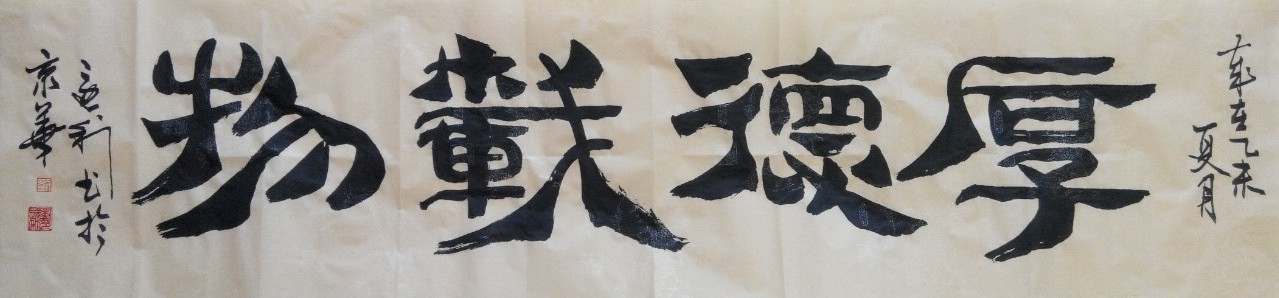 歲在乙未
夏月
厚德載物
利书於
京華